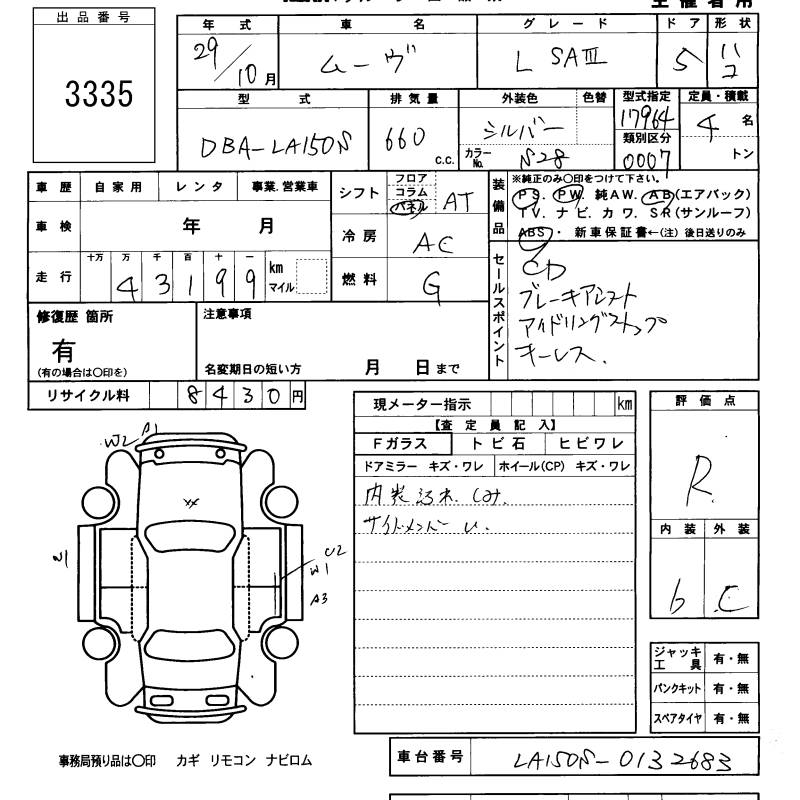 出品番号
3335
年式 車名 グレード ドア 形状
29/10月 ムーヴ L SAⅢ 5 ハコ
型式 排気量 外装色 色替 型式指定 定員・積載
DBA-LA150S 660 c.c. シルバー 17964 4名
カラーNo. S28 類別区分 0007 トン
車歴 自家用 レンタ 事業.営業車
車検 年 月
走行 十万 万 千 百 十 km マイル
4 3 1 9 9
シフト フロア コラム パネル AT
冷房 AC
燃料 G
装備品 ※純正のみ〇印をつけて下さい。
PS. PW. 純AW. AB(エアバック)
TV. ナビ. カワ. SR(サンルーフ)
ABS・ 新車保証書←(注) 後日送りのみ
セールスポイント
CD
ブレーキアシスト
アイドリングストップ
キーレス.
修復歴 箇所
有
(有の場合は〇印を)
注意事項
名変期日の短い方 月 日まで
リサイクル料 8430円
現メーター指示 km
【査定員記入】
Fガラス トビ石 ヒビワレ
ドアミラー キズ・ワレ ホイール(CP) キズ・ワレ
内装汚れ.しみ.
サイドメンバー U.
評価点
R
内装 外装
b C
W2 A1
XX
W1
U2
W1
A3
ジャッキ工具 有・無
パンクキット 有・無
スペアタイヤ 有・無
事務局預り品は〇印 カギ リモコン ナビロム
車台番号 LA150S-0132683